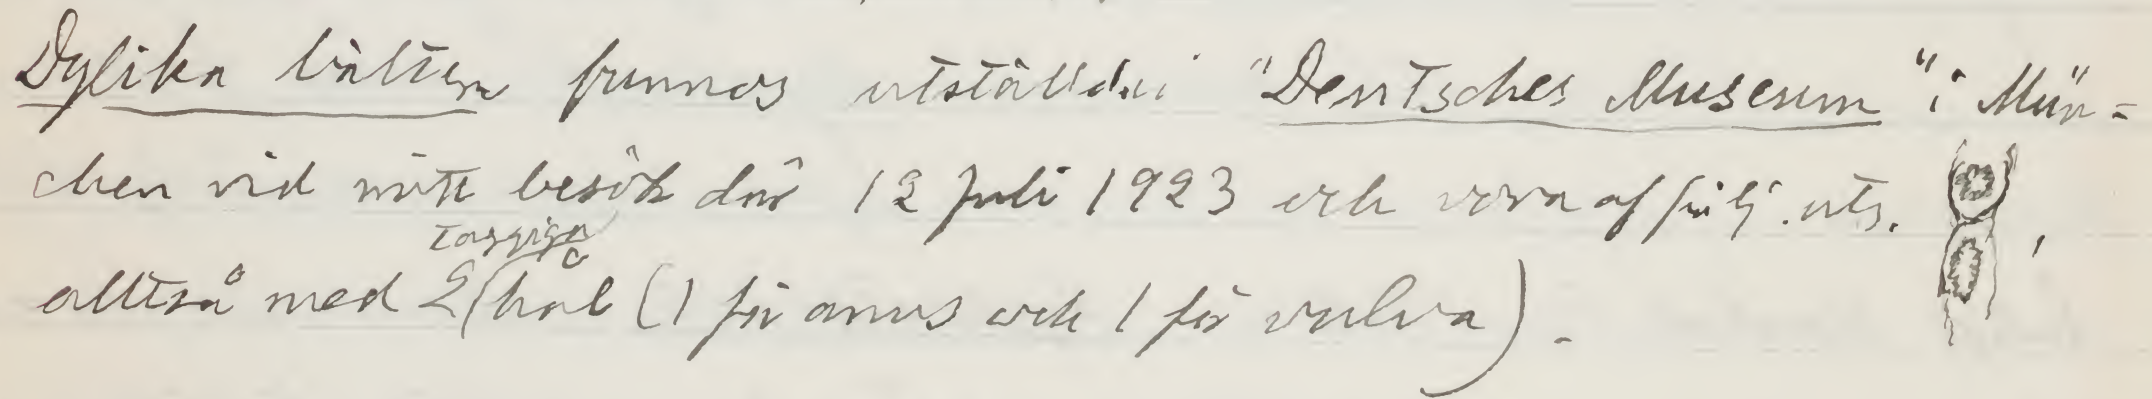 Dylika bälten funnos utställda i "Deutsches Museum" i Mün=
chen vid mitt besök där 12 Juli 1923 och voro af följ. uts.
taggiga
alltså med 2 hål (1 för anus och 1 för vulva).